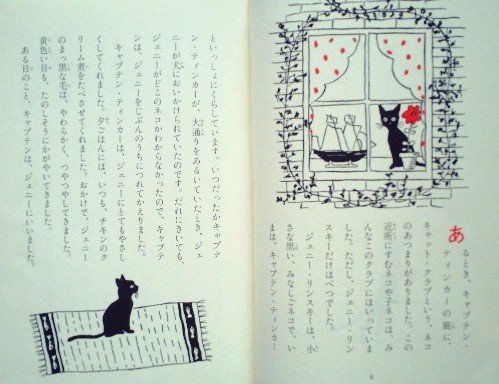 あるとき、キャプテン・
ティンカーの庭に、
キャット・クラブという、ネコ
のあつまりがありました。この
近所にすむネコや子ネコは、み
んなこのクラブにはいっていま
した。ただし、ジェニー・リン
スキーだけはべつでした。
ジェニー・リンスキーは、小
さな黒い、みなしごネコで、い
まは、キャプテン・ティンカー
6
といっしょにくらしています。いつだったかキャプテ
ン・ティンカーが、大通りをあるいていたとき、ジェ
ニーが犬においかけられていたのです。だれにきいても、
ジェニーがどこのネコかわからなかったので、キャプテ
ンは、ジェニーをじぶんのうちにつれてかえりました。
キャプテン・ティンカーは、ジェニーにとてもやさし
くしてくれました。夕ごはんには、いつも、チキンのク
リーム煮をたべさせてくれました。おかげで、ジェニー
のまっ黒な毛は、やわらかく、つやつやしてきました。
黄色い目も、たのしそうにかがやいてきました。
ある日のこと、キャプテンは、ジェニーにいいました。